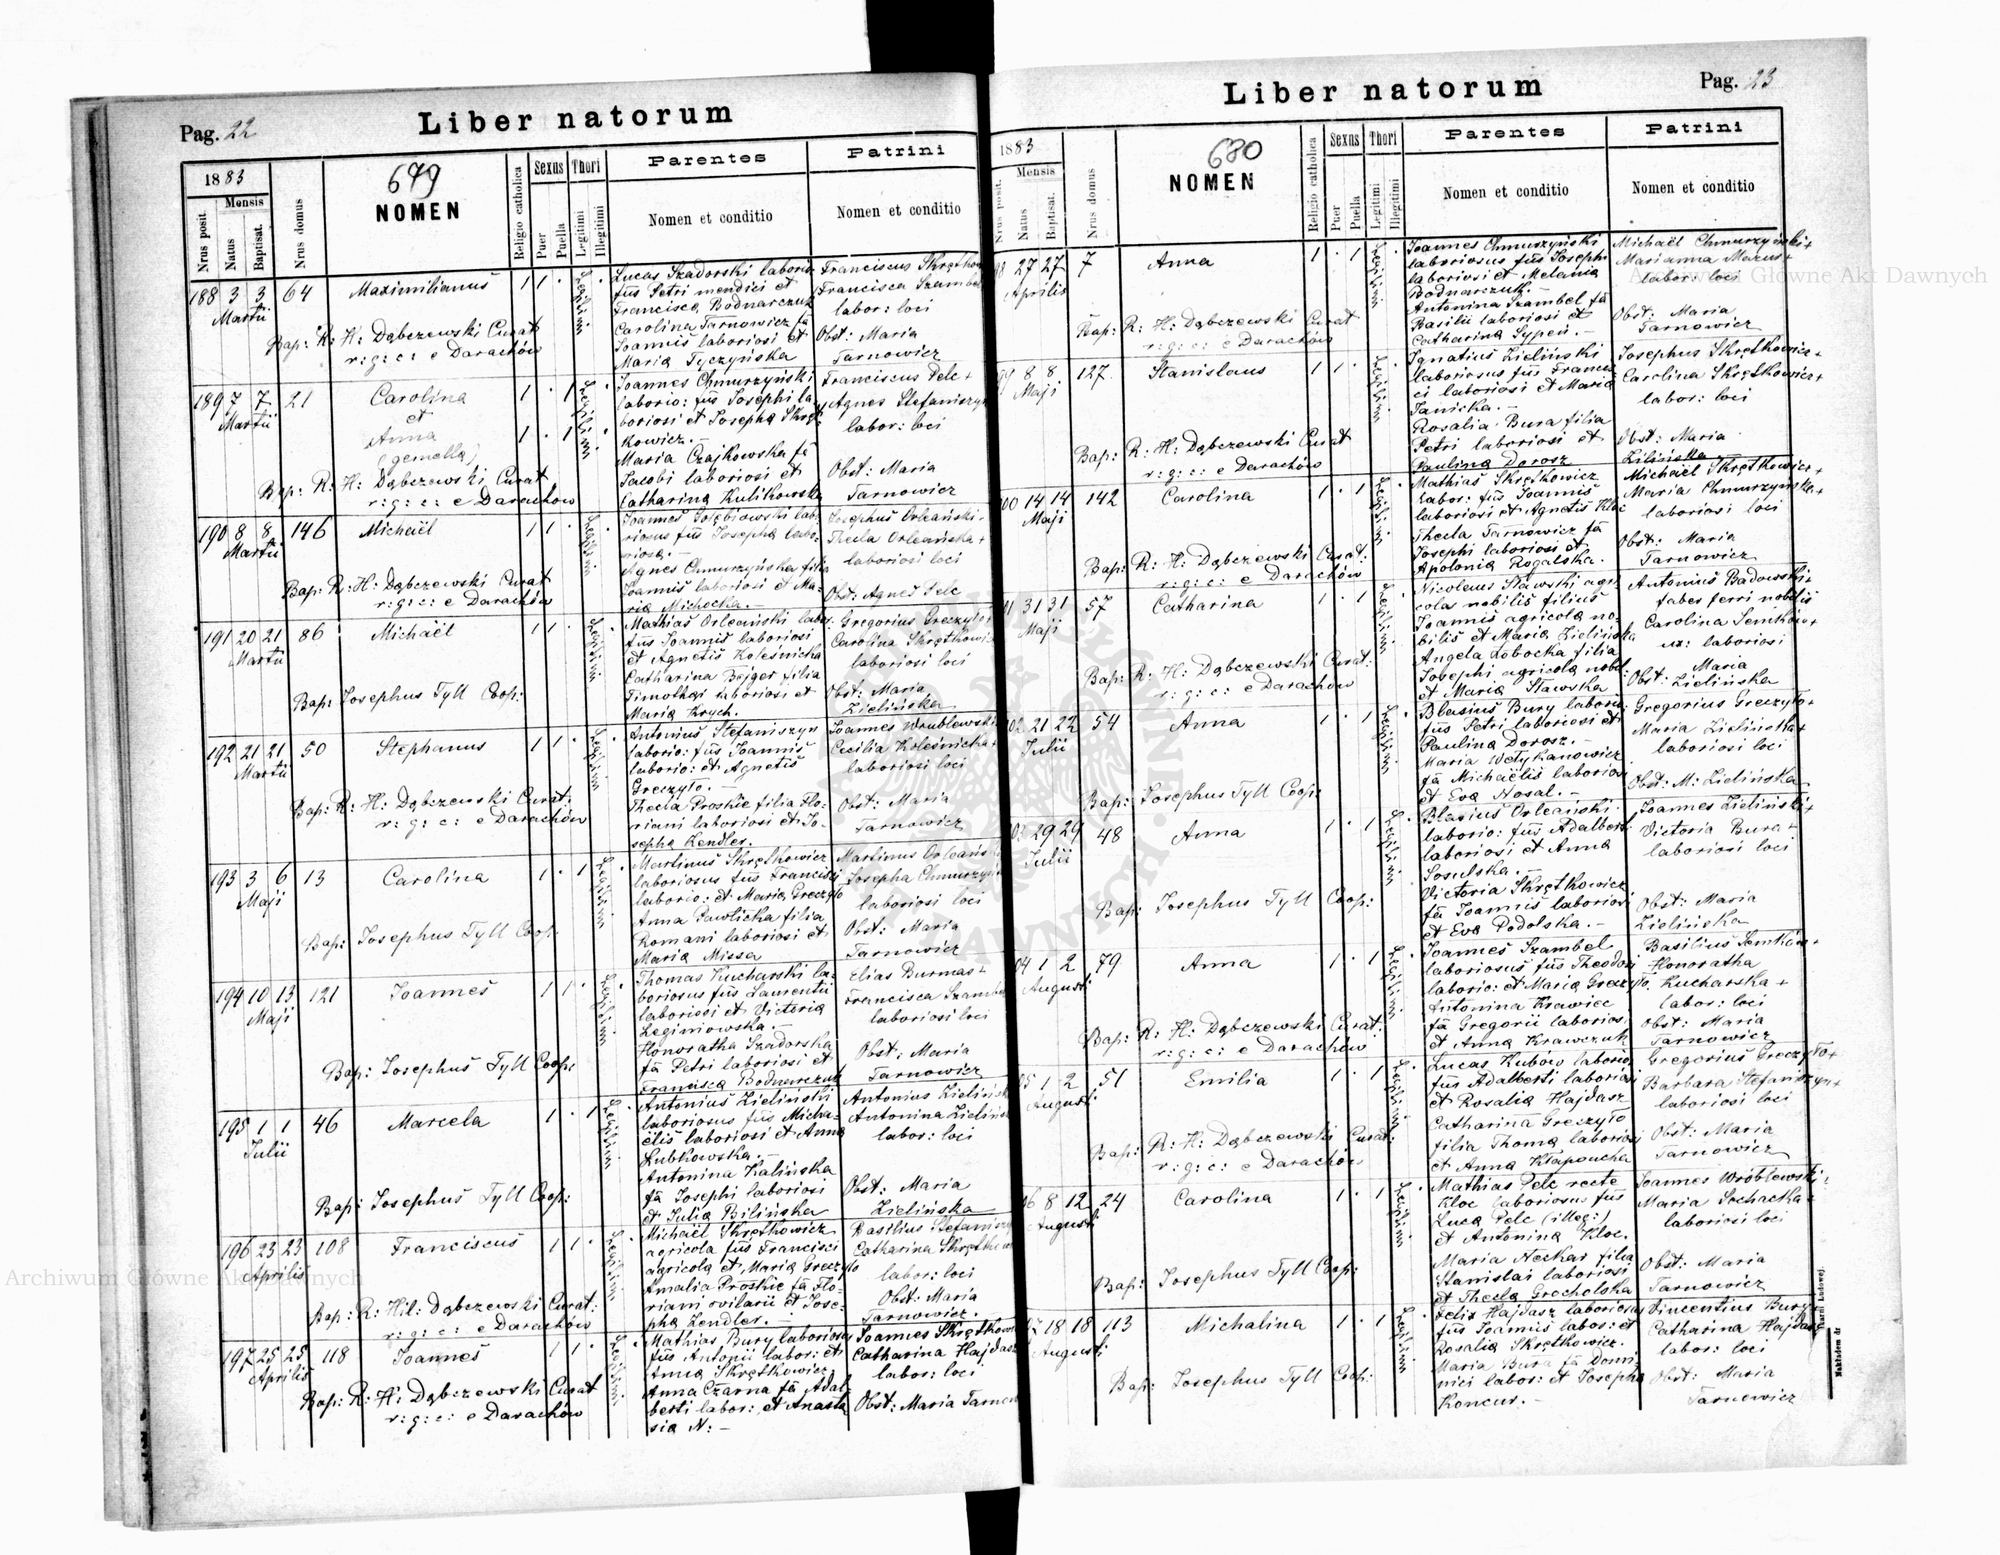 Liber natorum
Pag. 22
1883
679
NOMEN
Nrus posit.
Mensis
Natus
Baptisat.
Nrus domus
Religio catholica
Sexus
Puer
Puella
Thori
Legitimi
Illegitimi
Parentes
Nomen et conditio
Patrini
Nomen et conditio
188 3 3 64 Maximilianus 1 1 ·
Martii
Lucas Szadorski laborio:
fiis Petri mendici et
Francisca Bodnarczuk
Carolina Tarnowicz fa
Joannis laboriosi et
Maria Tyczyńska
Franciscus Skrętkow
Francisca Szambel
labor: loci
Obst: Maria
Tarnowicz
Bap: R: H: Dąbczewski Curat
r: g: c: e Darachów
189 7 7 21 Carolina 1 · 1
Martii
et
Anna 1 · 1
(gemella)
Joannes Chmurzyński
laborio: fiis Josephi la-
boriosi et Josepha Skręt
kowicz. –
Maria Czajkowska fa
Jacobi laboriosi et
Catharina Kulikowska
Franciscus Pelc +
Agnes Stefaniszyn
labor: loci
Obst: Maria
Tarnowicz
Bap: R: H: Dąbczewski Curat
r: g: c: e Darachów
190 8 8 146 Michaël 1 1 ·
Martii
Joannes Gołębiowski labo
riosus fiis Josepha labo-
riosa. –
Agnes Chmurzyńska filia
Joannis laboriosi et Ma-
ria Michocka. –
Josephus Orleański +
Thecla Orleańska +
laboriosi loci
Obst: Agnes Pelc
Bap: R: H: Dąbczewski Curat
r: g: c: e Darachów
191 20 21 86 Michaël 1 1 ·
Martii
Mathias Orleański labo:
fiis Joannis laboriosi
et Agnetis Koleśnicka
Catharina Bejger filia
Timothei laboriosi et
Maria Krych.
Gregorius Greczyło
Carolina Skrętkowi
laboriosi loci
Obst: Maria
Zielińska
Bap: Josephus Tyll Coop:
192 21 21 50 Stephanus 1 1 ·
Martii
Antonius Stefaniszyn
laborio: fiis Joannis
laborio: et Agnetis
Greczyło. –
Thecla Proskie filia Flo-
riani laboriosi et Jo-
sepha Kendler.
Joannes Wrublewski
Cecilia Koleśnicka +
laboriosi loci
Obst: Maria
Tarnowicz
Bap: R: H: Dąbczewski Curat:
r: g: c: e Darachów
193 3 6 13 Carolina 1 · 1
Maji
Martinus Skrętkowicz
laboriosus fiis Francisci
laborio: et Maria Greczyło
Anna Pawlicka filia
Romani laboriosi et
Maria Missa
Martinus Orleański
Josepha Chmurzyń
laboriosi loci
Obst: Maria
Tarnowicz
Bap: Josephus Tyll Coop:
194 10 13 121 Joannes 1 1 ·
Maji
Thomas Kucharski la-
boriosus fiis Laurentii
laboriosi et Victoria
Leginiowska. –
Honoratha Szadorska
fa Petri laboriosi et
Francisca Bodnarczuk
Elias Durmas +
Francisca Szambel
laboriosi loci
Obst: Maria
Tarnowicz
Bap: Josephus Tyll Coop:
195 1 1 46 Marcela 1 · 1
Julii
Antonius Zieliński
laboriosus fiis Micha-
ëlis laboriosi et Anna
Łubkowska. –
Antonina Kalińska
fa Josephi laboriosi
et Julia Bilińska
Antonius Zielińsk
Antonina Zielińsk
labor: loci
Obst: Maria
Zielińska
Bap: Josephus Tyll Coop:
196 23 23 108 Franciscus 1 1 ·
Aprilis
Michaël Skrętkowicz
agricola fiis Francisci
agricola et Maria Greczyło
Amalia Proskie fa Flo-
riani ovilarii et Jose-
pha Kendler. –
Basilius Stefaniszy
Catharina Skrętkow
labor: loci
Obst: Maria
Tarnowicz.
Bap: R: Hil: Dąbczewski Curat:
r: g: c: e Darachów
197 25 25 118 Joannes 1 1 ·
Aprilis
Mathias Bury laboriosus
fiis Antonii labor: et
Anna Skrętkowicz
Anna Czarna fa Adal-
berti labor: et Anasta
sia N: –
Joannes Skrętkow
Catharina Hajdasz
labor: loci
Obst: Maria Tarnow
Bap: R: H: Dąbczewski Curat
r: g: c: e Darachów
Liber natorum
Pag. 23
1883
680
NOMEN
Nrus posit.
Mensis
Natus
Baptisat.
Nrus domus
Religio catholica
Sexus
Puer
Puella
Thori
Legitimi
Illegitimi
Parentes
Nomen et conditio
Patrini
Nomen et conditio
98 27 27 7 Anna 1 · 1
Aprilis
Joannes Chmurzyński
laboriosus fiis Josephi
laboriosi et Melania
Bodnarczuk. –
Antonina Szambel fa
Basilii laboriosi et
Catharina Sypeń. –
Michaël Chmurzyński +
Marianna Mazus +
labor: loci
Obst: Maria
Tarnowicz
Bap: R: H: Dąbczewski Curat
r: g: c: e Darachów
99 8 8 127 Stanislaus 1 1 ·
Maji
Ignatius Zieliński
laboriosus fiis Francis
ci laboriosi et Maria
Janicka. –
Rosalia Bura filia
Petri laboriosi et
Paulina Dorosz
Josephus Skrętkowicz +
Carolina Skrętkowicz +
labor: loci
Obst: Maria
Zilińska
Bap: R: H: Dąbczewski Curat
r: g: c: e Darachów
00 14 14 142 Carolina 1 · 1
Maji
Mathias Skrętkowicz
labor: fiis Joannis
laboriosi et Agnetis Kloc
Thecla Tarnowicz fa
Josephi laboriosi et
Apolonia Rogalska.
Michaël Skrętkowicz +
Maria Chmurzyńska +
laboriosi loci
Obst: Maria
Tarnowicz
Bap: R: H: Dąbczewski Curat:
r: g: c: e Darachów
01 31 31 57 Catharina 1 · 1
Maji
Nicolaus Sławski agri
cola nobilis filius
Joannis agricola no-
bilis et Maria Zielińska
Angela Łobocka filia
Josephi agricola nobil
et Maria Sławska
Antonius Badowski +
faber ferri nobilis
Carolina Semków +
ux: laboriosi
Maria
Obst: Zielińska
Bap: R: H: Dąbczewski Curat:
r: g: c: e Darachów
02 21 22 54 Anna 1 · 1
Julii
Blasius Bury laborio:
fiis Petri laboriosi et
Paulina Dorosz. –
Maria Wetykanowicz
fa Michaëlis laboriosi
et Eva Nosal. –
Gregorius Greczyło +
Maria Zielińska +
laboriosi loci
Obst: M: Zielińska
Bap: Josephus Tyll Coop:
03 29 29 48 Anna 1 · 1
Julii
Blasius Orleański
laborio: fiis Adalberti
laboriosi et Anna
Sosulska. –
Victoria Skrętkowicz
fa Joannis laboriosi
et Eva Podolska. –
Joannes Zieliński +
Victoria Bura +
laboriosi loci
Obst: Maria
Zielińska
Bap: Josephus Tyll Coop:
04 1 2 79 Anna 1 · 1
Augusti
Joannes Szambel
laboriosus fiis Theodori
laborio: et Maria Greczyło
Antonina Krawiec
fa Gregorii laboriosi
et Anna Krawczuk
Basilius Semków +
Honoratha
Kucharska +
labor: loci
Obst: Maria
Tarnowicz
Bap: R: H: Dąbczewski Curat:
r: g: c: e Darachów
05 1 2 51 Emilia 1 · 1
Augusti
Lucas Kubów laborio:
fiis Adalberti laboriosi
et Rosalia Hajdasz
Catharina Greczyło
filia Thoma laboriosi
et Anna Kłapoucha
Gregorius Greczyło +
Barbara Stefaniszyn +
laboriosi loci
Obst: Maria
Tarnowicz
Bap: R: H: Dąbczewski Curat:
r: g: c: e Darachów
06 8 12 24 Carolina 1 · 1
Augusti
Mathias Pelc recte
Kloc laboriosus fiis
Luca Pelc (illeg:)
et Antonina Kloc.
Maria Neckar filia
Stanislai laboriosi
et Thecla Grocholska
Joannes Wróblewski +
Maria Sochacka +
laboriosi loci
Obst: Maria
Tarnowicz
Bap: Josephus Tyll Coop:
07 18 18 113 Michalina 1 · 1
Augusti
Felix Hajdasz laboriosus
fiis Joannis labor: et
Rosalia Skrętkowicz.
Maria Bura fa Domi
nici labor: et Josepha
Koncur. –
Vincentius Bury +
Catharina Hajdasz
labor: loci
Obst: Maria
Tarnowicz
Bap: Josephus Tyll Coop:
Archiwum Główne Akt Dawnych
Archiwum Główne Akt Dawnych